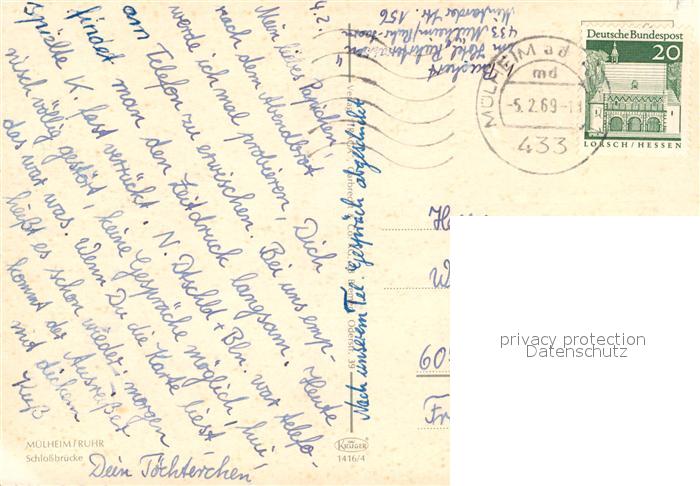 4.2.
Mein liebes Papichen!
nach dem Abendbrot
werde ich mal probieren, Dich
am Telefon zu erwischen. Bei uns emp-
findet man den Zeitdruck langsam. Heute
spielte K. fast verrückt. N. Dtschld + Bln. war telefo-
nisch völlig gestört, keine Gespräche möglich, hui,
das war was. Wenn Du die Karte liest,
heißt es schon wieder: morgen
kommt der Ausreißer
mit dickem
Kuß
Dein Töchterchen
Nach unserem Tel. Gespräch abgeschickt
MÜLHEIM/RUHR
Schloßbrücke
KRÜGER
1416/4
433 Mülheim/Ruhr
Str. 156
MÜLHEIM
md
-5.2.69-
433
Deutsche Bundespost
20
LORSCH/HESSEN
60
Fr
privacy protection
Datenschutz